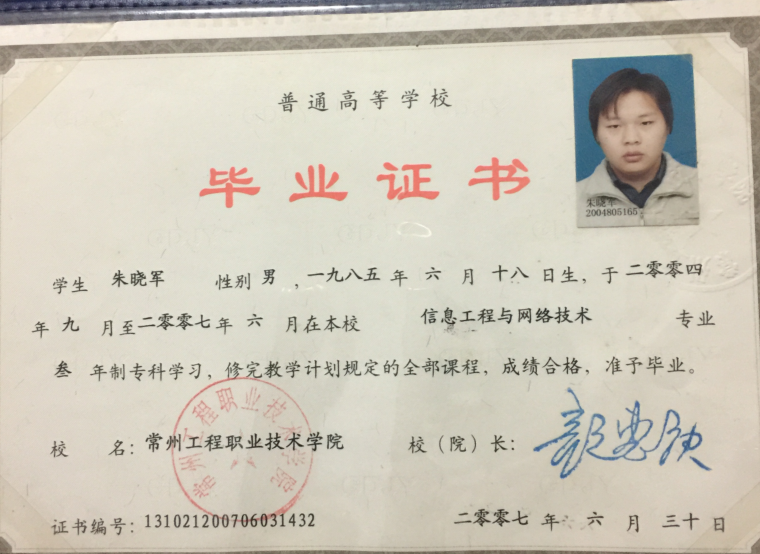 普通高等学校
毕业证书
朱晓军
2004805165
学生 朱晓军 性别 男 ，一九八五 年 六 月 十八 日生，于 二零零四
年 九 月至 二零零七 年 六 月在本校 信息工程与网络技术 专业
叁 年制专科学习，修完教学计划规定的全部课程，成绩合格，准予毕业。
校 名：常州工程职业技术学院 校（院）长：
常州工程职业技术学院
证书编号：131021200706031432 二零零七 年 六 月 三十 日